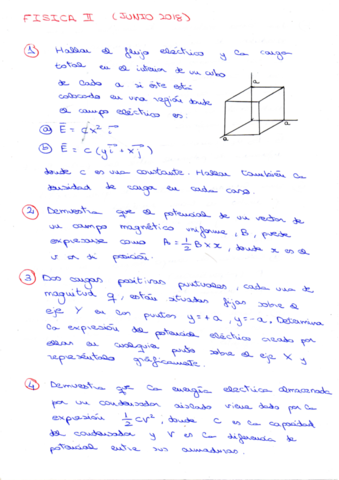 FISICA II (JUNIO 2018)
1 Hallar el flujo eléctrico y la carga
total en el interior de un cubo
de lado a si éste está
colocado en una región donde
el campo eléctrico es:
a) E = cx² i
b) E = c (y i + x j)
donde c es una constante. Hallar también la
densidad de carga en cada caso.
a
a
a
2 Demuestra que el potencial de un vector de
un campo magnético uniforme, B, puede
expresarse como A = 1/2 B × x, donde x es el
v or di posición.
3 Dos cargas positivas puntuales, cada una de
magnitud q, están situadas fijas sobre el
eje Y en los puntos y = +a, y = -a. Determina
la expresión del potencial eléctrico creado por
ellas en cualquier punto sobre el eje X y
represéntalo gráficamente.
4 Demuestra que la energía eléctrica almacenada
por un condensador aislado viene dada por la
expresión 1/2 CV², donde C es la capacidad
del condensador y V es la diferencia de
potencial entre sus armaduras.